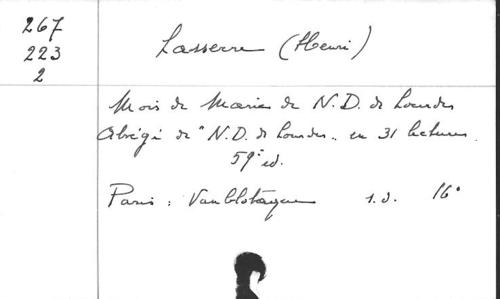 267
223
2
Lasserre (Henri)
Mois de Marie de N.D. de Lourdes
Abrégé de "N.D. de Lourdes" en 31 lectures.
59e ed.
Paris : Vanblotaque s.d. 16°